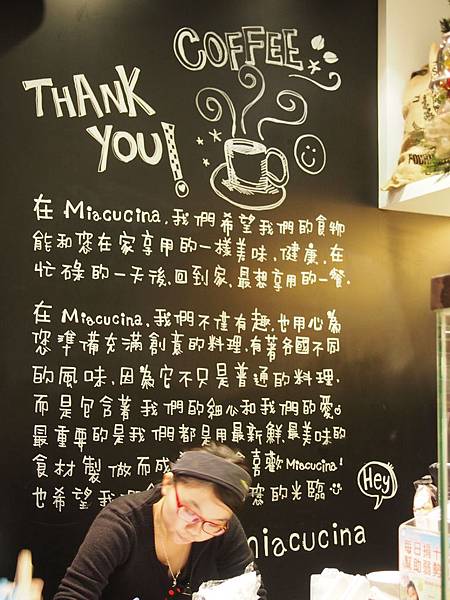 COFFEE
THANK
YOU!
在 Miacucina,我們希望我們的食物
能和您在家享用的一樣美味、健康,在
忙碌的一天後,回到家,最想享用的一餐.
在 Miacucina,我們不僅有趣,也用心為
您準備充滿創意的料理,有著各國不同
的風味,因為它不只是普通的料理.
而是包含著我們的細心和我們的愛
最重要的是我們都是用最新鮮、最美味的
食材製做而成 喜歡 Miacucina!
也希望我 您的光臨
Hey
miacucina
每日捐十
幫助弱勢